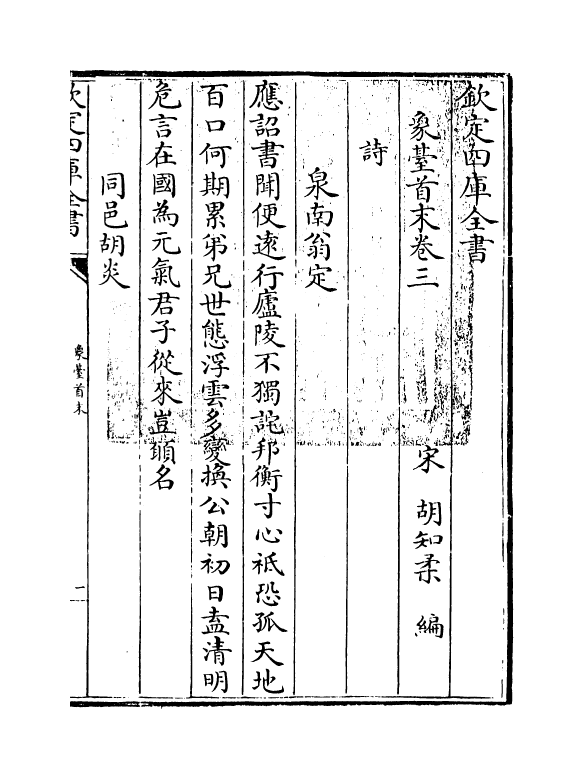 欽定四庫全書
象臺首末卷三
宋 胡知柔 編
詩
泉南翁定
應詔書聞便逺行廬陵不獨詫邦衡寸心祗恐孤天地
百口何期累弟兄世態浮雲多變換公朝初日盍清明
危言在國為元氣君子從來豈顧名
同邑胡炎
欽定四庫全書
象臺首末
一